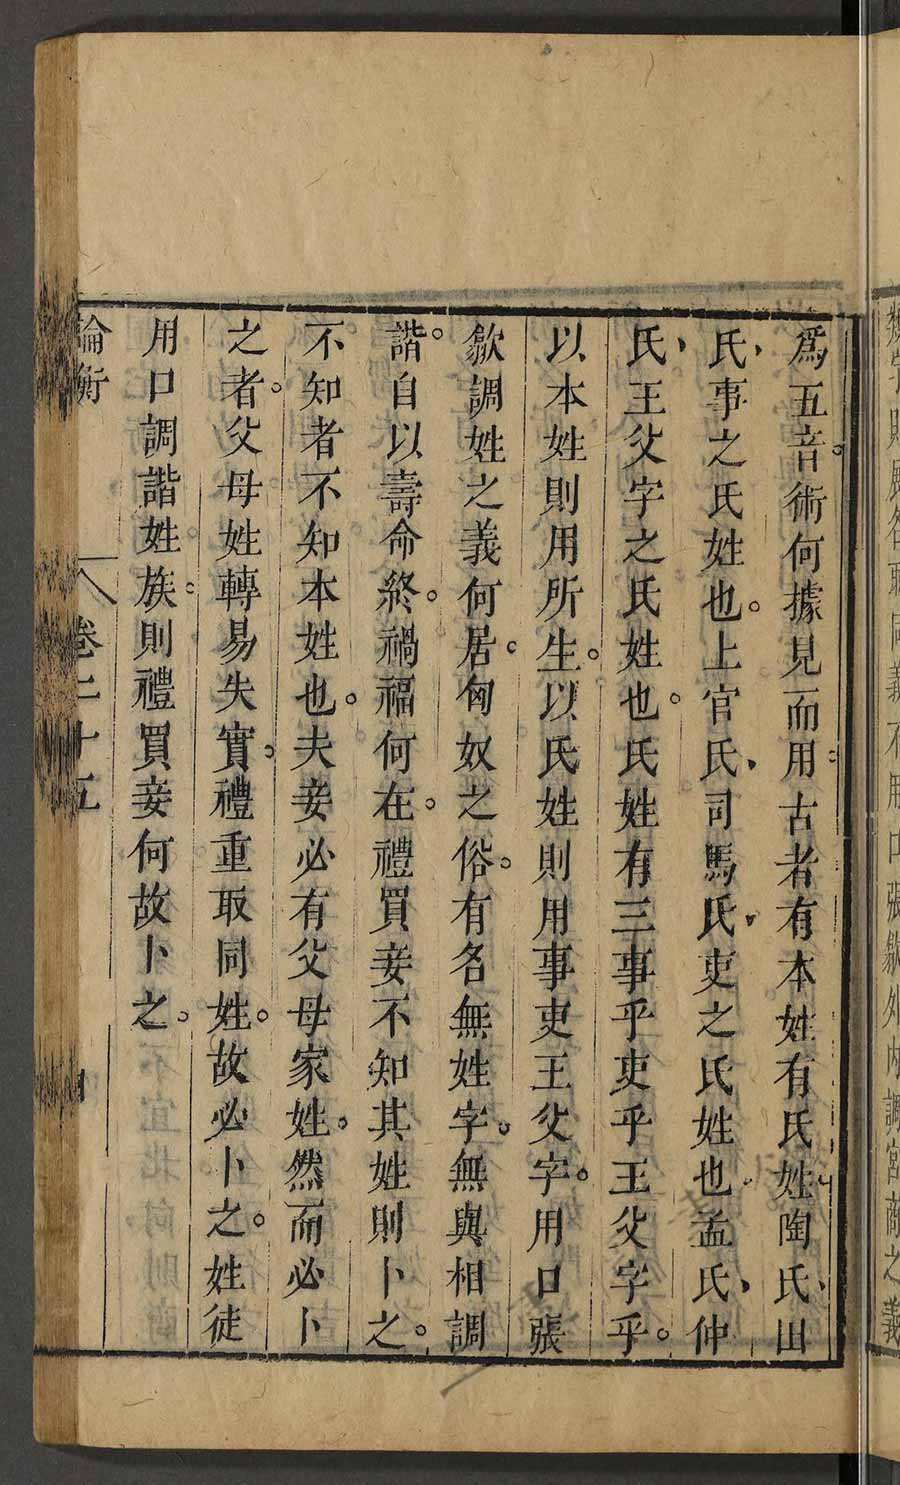 爲五音術何據見而用古者有本姓有氏姓陶氏田
氏事之氏姓也上官氏司馬氏吏之氏姓也孟氏仲
氏王父字之氏姓也氏姓有三事乎吏乎王父字乎
以本姓則用所生以氏姓則用事吏王父字用口張
歙調姓之義何居匈奴之俗有名無姓字無與相調
諧自以壽命終禍福何在禮買妾不知其姓則卜之
不知者不知本姓也夫妾必有父母家姓然而必卜
之者父母姓轉易失實禮重取同姓故必卜之姓徒
用口調諧姓族則禮買妾何故卜之
論衡 卷二十五